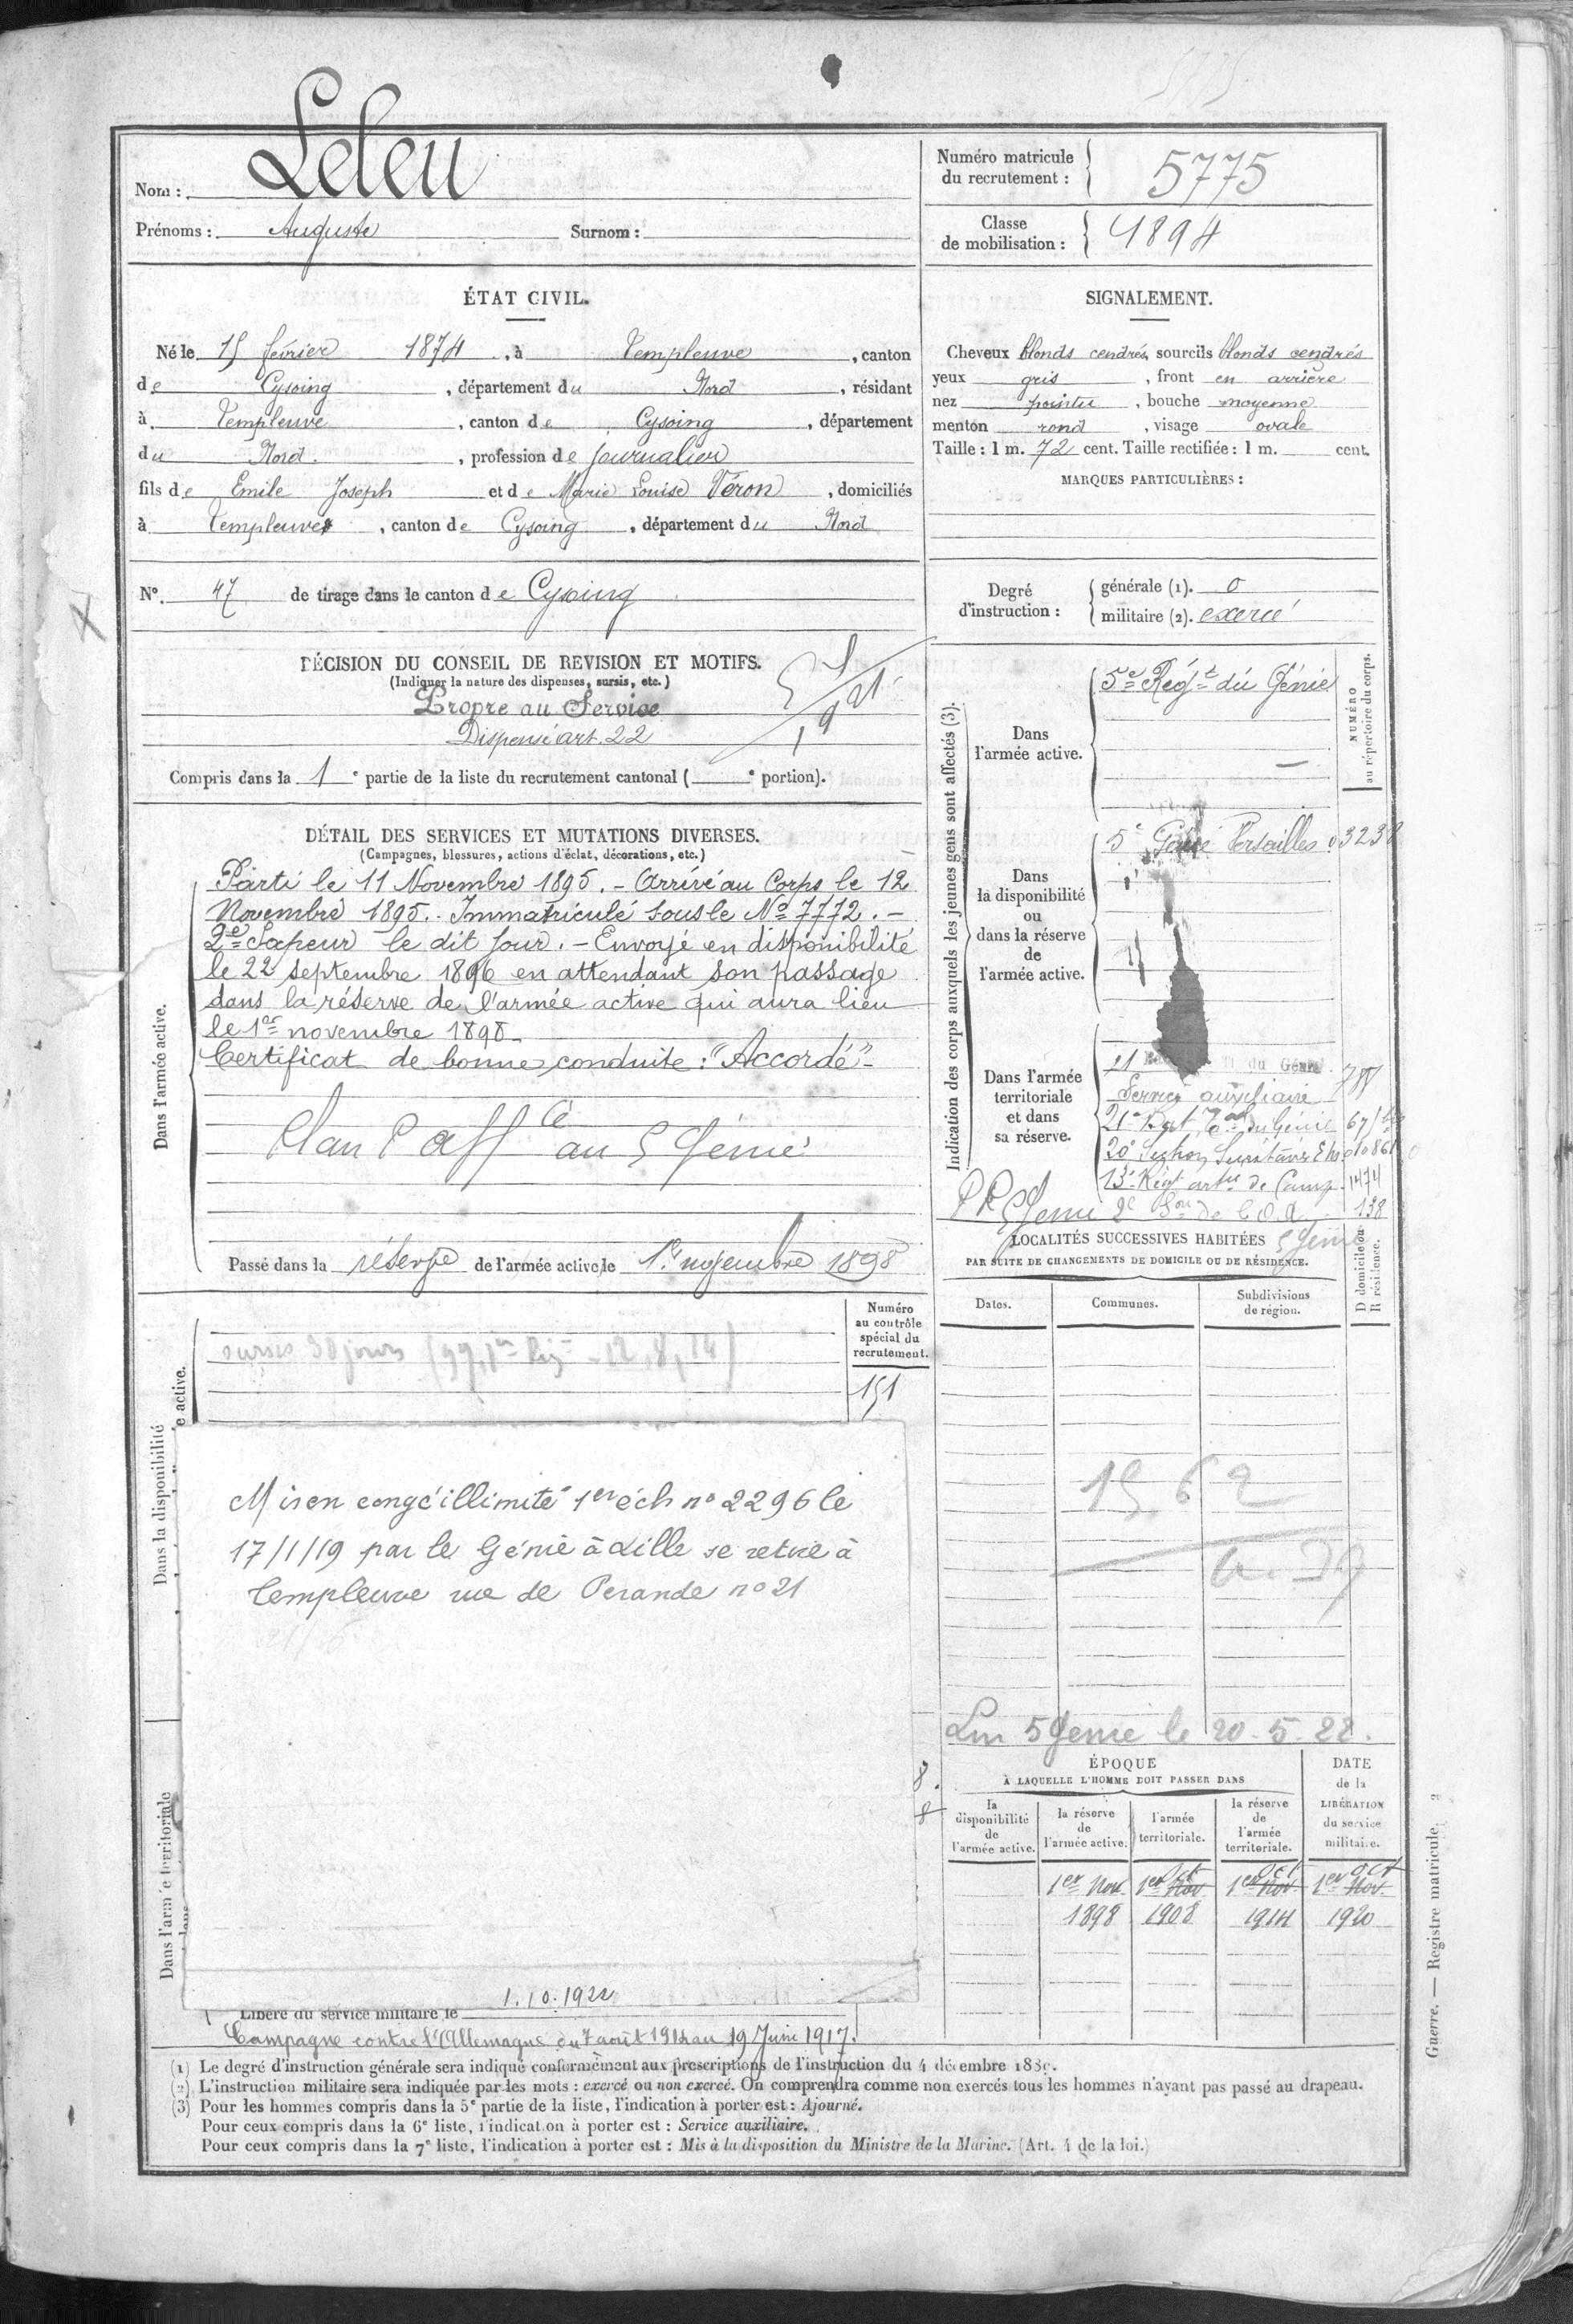 Nom : Leleu
Prénoms : Auguste Surnom :
Numéro matricule
du recrutement : 5775
Classe
de mobilisation : 1894
ÉTAT CIVIL.
Né le 15 février 1874, à Templeuve, canton
de Cysoing, département du Nord, résidant
à Templeuve, canton de Cysoing, département
du Nord, profession de journalier
fils de Emile Joseph et de Marie Louise Véron, domiciliés
à Templeuve, canton de Cysoing, département du Nord
N° 47 de tirage dans le canton de Cysoing
SIGNALEMENT.
Cheveux blonds cendrés, sourcils blonds cendrés
yeux gris, front en arrière
nez pointu, bouche moyenne
menton rond, visage ovale
Taille : 1 m. 72 cent. Taille rectifiée : 1 m. cent.
MARQUES PARTICULIÈRES :
Degré
d'instruction :
générale (1). 0
militaire (2). exercé
DÉCISION DU CONSEIL DE REVISION ET MOTIFS.
(Indiquer la nature des dispenses, sursis, etc.)
Propre au Service
Dispensé art. 22
Compris dans la 1e partie de la liste du recrutement cantonal ( e portion).
DÉTAIL DES SERVICES ET MUTATIONS DIVERSES.
(Campagnes, blessures, actions d'éclat, décorations, etc.)
Dans l'armée active.
Parti le 11 Novembre 1895. - Arrivé au Corps le 12
Novembre 1895. - Immatriculé sous le No 7772. -
2e Sapeur le dit jour. - Envoyé en disponibilité
le 22 septembre 1896 en attendant son passage
dans la réserve de l'armée active qui aura lieu
le 1er novembre 1898
Certificat de bonne conduite : "Accordé" -
Plan P affté au 5 Génie
Passé dans la réserve de l'armée active le 1er novembre 1898
Numéro
au contrôle
spécial du
recrutement.
151
sursis 30 jours
Dans la disponibilité
e active.
Mis en congé illimité 1er éch no 2296 le
17/1/19 par le Génie à Lille se retire à
Templeuve rue de Perande no 21
Dans l'armée territoriale
Libéré du service militaire le 1.10.1922
Campagne contre l'Allemagne du 7 août 1914 au 19 Juin 1917.
Indication des corps auxquels les jeunes gens sont affectés (3).
NUMÉRO
au répertoire du corps.
Dans
l'armée active.
5e Régt du Génie
Dans
la disponibilité
ou
dans la réserve
de
l'armée active.
5e Génie Versailles 03238
Dans l'armée
territoriale
et dans
sa réserve.
21 du Génie
Service auxiliaire
21e Bat Tal du Génie
20e 
13e Régt artie de Camp. 1474
5 Génie 138
5 Génie
LOCALITÉS SUCCESSIVES HABITÉES
PAR SUITE DE CHANGEMENTS DE DOMICILE OU DE RÉSIDENCE.
D domicile ou
R résidence.
Dates. Communes. Subdivisions
de région.
1562
5 Génie le 20-5-22.
ÉPOQUE
À LAQUELLE L'HOMME DOIT PASSER DANS
la
disponibilité
de
l'armée active.
la réserve
de
l'armée active.
l'armée
territoriale.
la réserve
de
l'armée
territoriale.
DATE
de la
LIBÉRATION
du service
militaire.
1er Nov. 1er Nov Oct 1er Nov Oct 1er Nov. Oct
1898 1908 1914 1920
Guerre. — Registre matricule.
(1) Le degré d'instruction générale sera indiqué conformément aux prescriptions de l'instruction du 4 décembre 1889.
(2) L'instruction militaire sera indiquée par les mots : exercé ou non exercé. On comprendra comme non exercés tous les hommes n'ayant pas passé au drapeau.
(3) Pour les hommes compris dans la 5e partie de la liste, l'indication à porter est : Ajourné.
Pour ceux compris dans la 6e liste, l'indication à porter est : Service auxiliaire.
Pour ceux compris dans la 7e liste, l'indication à porter est : Mis à la disposition du Ministre de la Marine. (Art. 4 de la loi.)